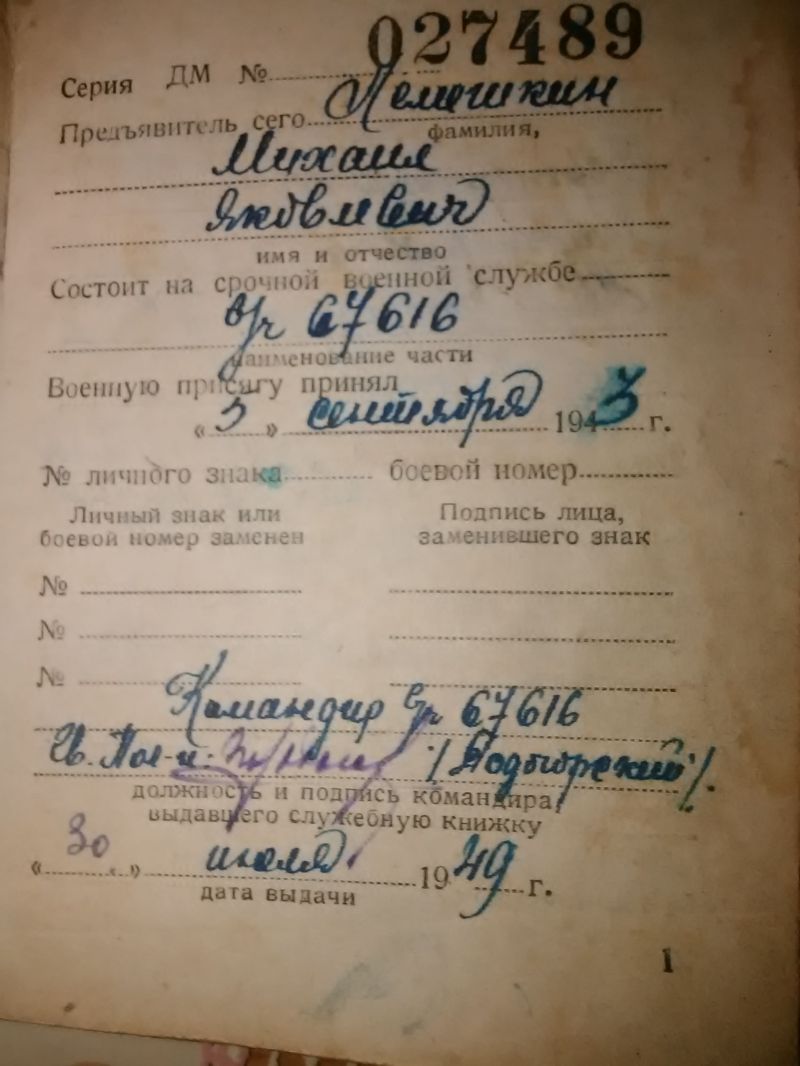 027489
Серия ДМ №
Предъявитель сего Лемешкин
фамилия,
Михаил
Яковлевич
имя и отчество
Состоит на срочной военной службе
в/ч 67616
наименование части
Военную присягу принял
« 3 » сентября 1943 г.
№ личного знака боевой номер
Личный знак или Подпись лица,
боевой номер заменен заменившего знак
№
№
№
Командир в/ч 67616
Гв. Пол-к: /Подгорский/.
должность и подпись командира,
выдавшего служебную книжку
« 30 » июля 1949 г.
дата выдачи
1